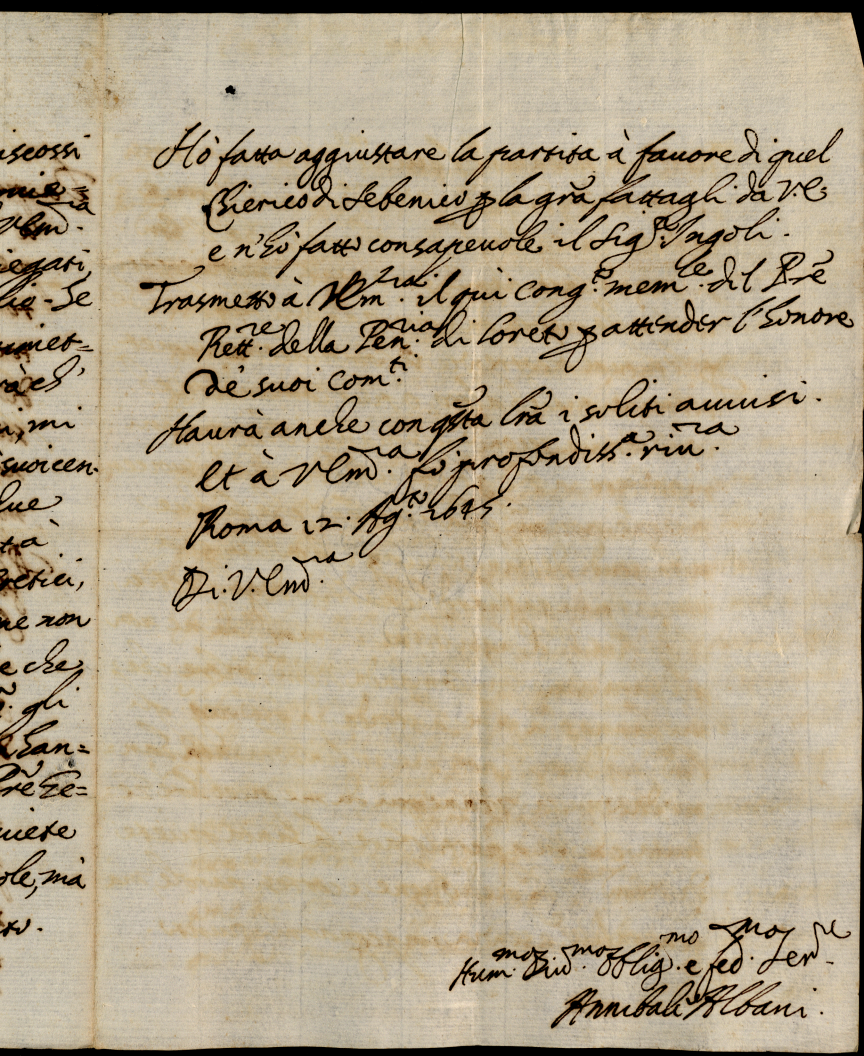 iscossi
mie=
VEm.za
iegati
lio. Se
umet=
rà ch'
i, mi
suoi cen.
due
tà
retici,
ne non
e che
gli
e han=
Prẽ Ge=
uiete
ole, mà
to.
Hò fatta aggiustare la partita à fauore di quel
Chierico di Sebenico ꝑ la gr̃a fattagli da V. E.
e n'hò fatto consapeuole il Sig.r Ingoli.
Trasmetto à VEm.za il quì cong.to mem.le del Prẽ
Rett.re della Pen.ria di Loreto ꝑ attender l'honore
de' suoi com.ti
Haurà anche con q̃sta lr̃a i soliti auuisi.
Et à VEm.za fò profondiss.a riu.za
Roma 12. Ag.to 1645.
Di V. Em.za
Hum.mo Diu.mo Oblig.mo e fed.mo Ser.re
Annibale Albani.